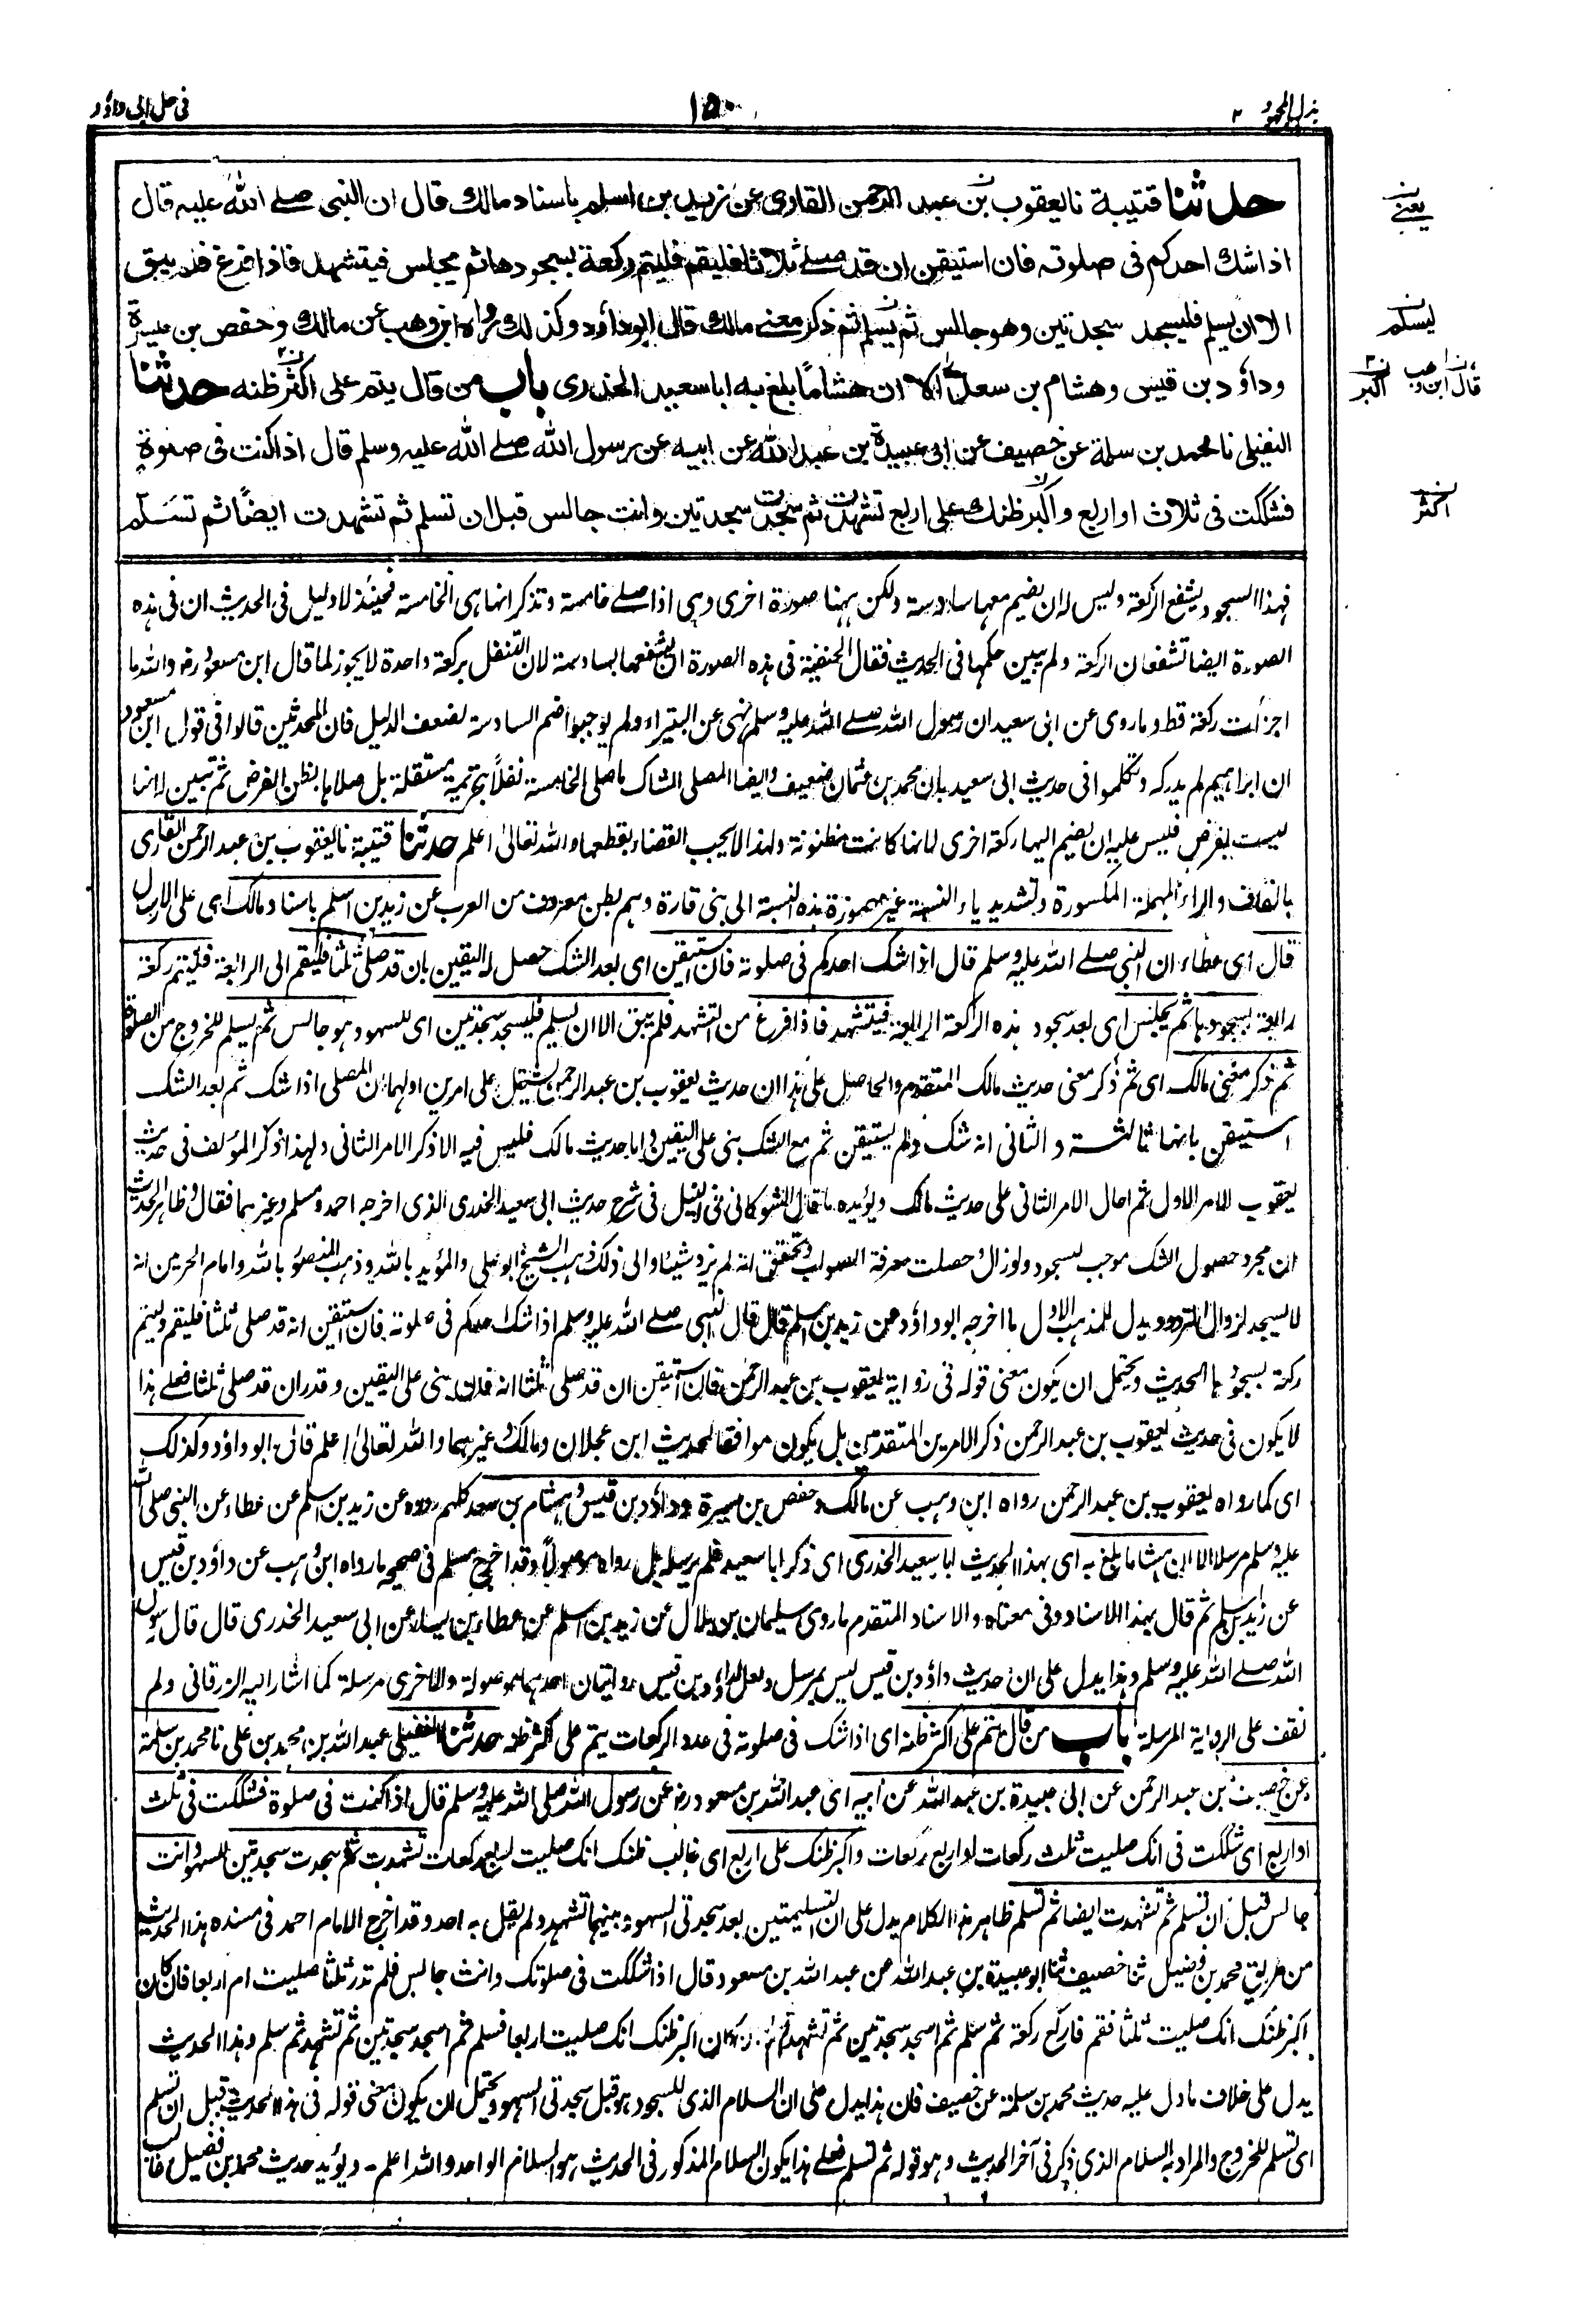 بذل المجهود ٢
١٥٠
فى حل ابى داؤد
حدثنا قتيبة نا يعقوب بن عبد الرحمن القارى عن زيد بن اسلم باسناد مالك قال ان النبى صلے الله عليه قال
اذا شك احدكم فى صلوته فان استيقن ان قد صلے ثلاثا فليقم فليتم ركعة بسجودها ثم يجلس فيتشهد فاذا فرغ فلم يبق
الا ان يسلم فليسجد سجدتين وهو جالس ثم يسلم ثم ذكر معنے مالك قال ابوداؤد وكذلك رواه ابن وهب عن مالك وحفص بن ميسرة
وداؤد بن قيس وهشام بن سعد الا ان هشاما بلغ به ابا سعيد الخدرى باب من قال يتم على اكثر ظنه حدثنا
النفيلى نا محمد بن سلمة عن خصيف عن ابى عبيدة بن عبد الله عن ابيه عن رسول الله صلے الله عليه وسلم قال اذا كنت فى صلوة
فشككت فى ثلاث او اربع واكبر ظنك على اربع تشهدت ثم سجدت سجدتين وانت جالس قبل ان تسلم ثم تشهدت ايضًا ثم تسلم
يعنے
يسلم
قال ابن وهب
اكبر
اكثر
فهذا السجود يشفع الركعة وليس له ان يضيم معها سادسة ولكن ههنا صورة اخرى وهى اذا صلے خامسة وتذكر انها هى الخامسة فحينئذ لا دليل فى الحديث ان فى هذه
الصورة ايضا تشفعان الركعة ولم يبين حكمها فى الحديث فقال الحنفية فى هذه الصورة ان يشفعها بسادسة لان التنفل بركعة واحدة لا يجوز لما قال ابن مسعود رضـ والله ما
اجزأت ركعة قط وما روى عن ابى سعيد ان رسول الله صلے الله عليه وسلم نهى عن البتيراء ولم يوجبوا ضم السادسة لضعف الدليل فان المحدثين قالوا فى قول ابن مسعود
ان ابراهيم لم يدركه وتكلموا فى حديث ابى سعيد بان محمد بن عثمان ضعيف وايضا المصلى الشاك ما صلى الخامسة نفلاً بتحريمة مستقلة بل صلاها بظن الفرض ثم تبين انها
ليست بفرض فليس عليه ان يضيم اليها ركعة اخرى لانها كانت مظنونة ولهذا لا يجب القضاء بقطعها والله تعالىٰ اعلم حدثنا قتيبة نا يعقوب بن عبد الرحمن القارى
بالقاف والراء المهملة المكسورة وتشديد ياء النسبة غير مهموزة هذه النسبة الى بنى قارة وهم بطن معروف من العرب عن زيد بن اسلم باسناد مالك اى على الارسال
قال اى عطاء ان النبى صلے الله عليه وسلم قال اذا شك احدكم فى صلوته فان استيقن اى بعد الشك حصل له اليقين بان قد صلى ثلثا فليقم الى الرابعة فليتم ركعة
رابعة بسجودها ثم يجلس اى بعد سجود هذه الركعة الرابعة فيتشهد فاذا فرغ من التشهد فلم يبق الا ان يسلم فليسجد سجدتين اى للسهو وهو جالس ثم يسلم للخروج من الصلوة
ثم ذكر معنى مالك اى ثم ذكر معنى حديث مالك المتقدم والحاصل على هذا ان حديث يعقوب بن عبد الرحمن يشتمل على امرين اولهما ان المصلى اذا شك ثم بعد الشك
استيقن بانها ثالثة والثانى انه شك ولم يستيقن ثم مع الشك بنى على اليقين واما حديث مالك فليس فيه الا ذكر الامر الثانى ولهذا ذكر المؤلف فى حديث
يعقوب الامر الاول ثم احال الامر الثانى على حديث مالك ويؤيده ما قال الشوكانى فى النيل فى شرح حديث ابى سعيد الخدرى الذى اخرجه احمد ومسلم وغيرهما فقال وظاهر الحديث
ان مجرد حصول الشك موجب لسجود ولو زال وحصلت معرفة الصواب وتحقق انه لم يزد شيئا والى ذلك ذهب الشيخ ابو على والمؤيد بالله وذهب المنصور بالله وامام الحرمين انه
لا يسجد لزوال التردد ويدل للمذهب الاول ما اخرجه ابو داؤد عن زيد بن اسلم قال قال النبى صلے الله عليه وسلم اذا شك احدكم فى صلوته فان استيقن انه قد صلى ثلثا فليقم وليتم
ركعة بسجودها الحديث ويحتمل ان يكون معنى قوله فى رواية يعقوب بن عبد الرحمن فان استيقن ان قد صلى ثلثا انه بنى على اليقين وقدر ان قد صلى ثلثا فعلے هذا
لا يكون فى حديث يعقوب بن عبد الرحمن ذكر الامرين المتقدمين بل يكون موافقا لحديث ابن عجلان ومالك وغيرهما والله تعالىٰ اعلم قال ابو داؤد وكذلك
اى كما رواه يعقوب بن عبد الرحمن رواه ابن وهب عن مالك وحفص بن ميسرة وداؤد بن قيس وهشام بن سعد كلهم رووه عن زيد بن اسلم عن عطاء عن النبى صلى الله
عليه وسلم مرسلا الا ان هشاما بلغ به اى بهذا الحديث ابا سعيد الخدرى اى ذكر ابا سعيد فلم يرسله بل رواه موصولاً وقد اخرج مسلم فى صحيحه ما رواه ابن وهب عن داؤد بن قيس
عن زيد بن اسلم ثم قال بهذا الاسناد وفى معناه والاسناد المتقدم ما روى سليمان بن بلال عن زيد بن اسلم عن عطاء بن يسار عن ابى سعيد الخدرى قال قال رسول
الله صلے الله عليه وسلم وهذا يدل على ان حديث داؤد بن قيس ليس بمرسل ولعل لداؤد بن قيس روايتان احدهما موصولة والاخرى مرسلة كما اشار اليه الزرقانى ولم
نقف على الرواية المرسلة باب من قال يتم على اكثر ظنه اى اذا شك فى صلوته فى عدد الركعات يتم على اكثر ظنه حدثنا النفيلى عبد الله بن محمد بن على نا محمد بن سلمة
عن خصيف بن عبد الرحمن عن ابى عبيدة بن عبد الله عن ابيه اى عبد الله بن مسعود رضـ عن رسول الله صلى الله عليه وسلم قال اذا كنت فى صلوة فشككت فى ثلث
او اربع اى شككت فى انك صليت ثلث ركعات او اربع ركعات واكبر ظنك على اربع اى غالب ظنك انك صليت اربع ركعات تشهدت ثم سجدت سجدتين للسهو وانت
جالس قبل ان تسلم ثم تشهدت ايضا ثم تسلم ظاهر هذا الكلام يدل على ان التسليمتين بعد سجدتى السهو وبينهما تشهد ولم يقل به احد وقد اخرج الامام احمد فى مسنده هذا الحديث
من طريق محمد بن فضيل ثنا خصيف ثنا ابو عبيدة بن عبد الله عن عبد الله بن مسعود قال اذا شككت فى صلوتك وانت جالس فلم تدر ثلثا صليت ام اربعا فان كان
اكبر ظنك انك صليت ثلثا فقم فاركع ركعة ثم سلم ثم اسجد سجدتين ثم تشهد ثم سلم وان كان اكبر ظنك انك صليت اربعا فسلم ثم اسجد سجدتين ثم تشهد ثم سلم وهذا الحديث
يدل على خلاف ما دل عليه حديث محمد بن سلمة عن خصيف فان هذا يدل على ان السلام الذى للسجود هو قبل سجدتى السهو ويحتمل ان يكون معنى قوله فى هذا الحديث قبل ان تسلم
اى تسلم للخروج والمراد به السلام الذى ذكر فى آخر الحديث وهو قوله ثم تسلم فعلے هذا يكون السلام المذكور فى الحديث هو السلام الواحد والله اعلم - ويؤيد حديث محمد بن فضيل